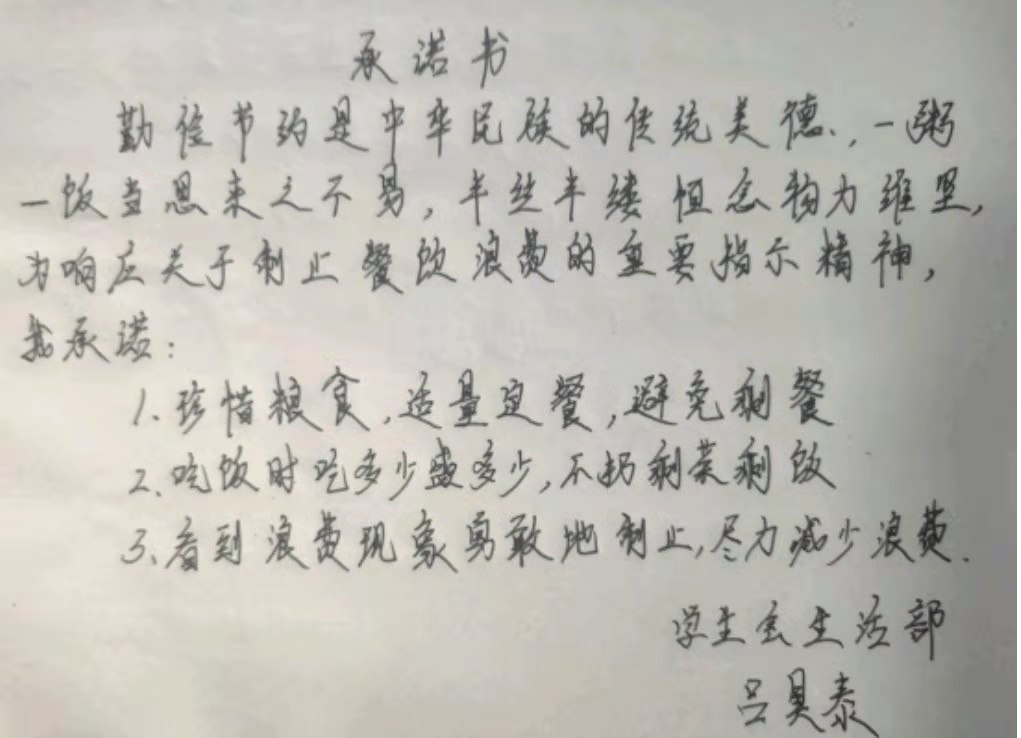 承诺书
勤俭节约是中华民族的传统美德.,一粥
一饭当思来之不易,半丝半缕恒念物力维坚,
为响应关于制止餐饮浪费的重要指示精神,
我承诺:
1.珍惜粮食,适量定餐,避免剩餐
2.吃饭时吃多少盛多少,不扔剩菜剩饭
3.看到浪费现象勇敢地制止,尽力减少浪费.
学生会生活部
吕昊泰